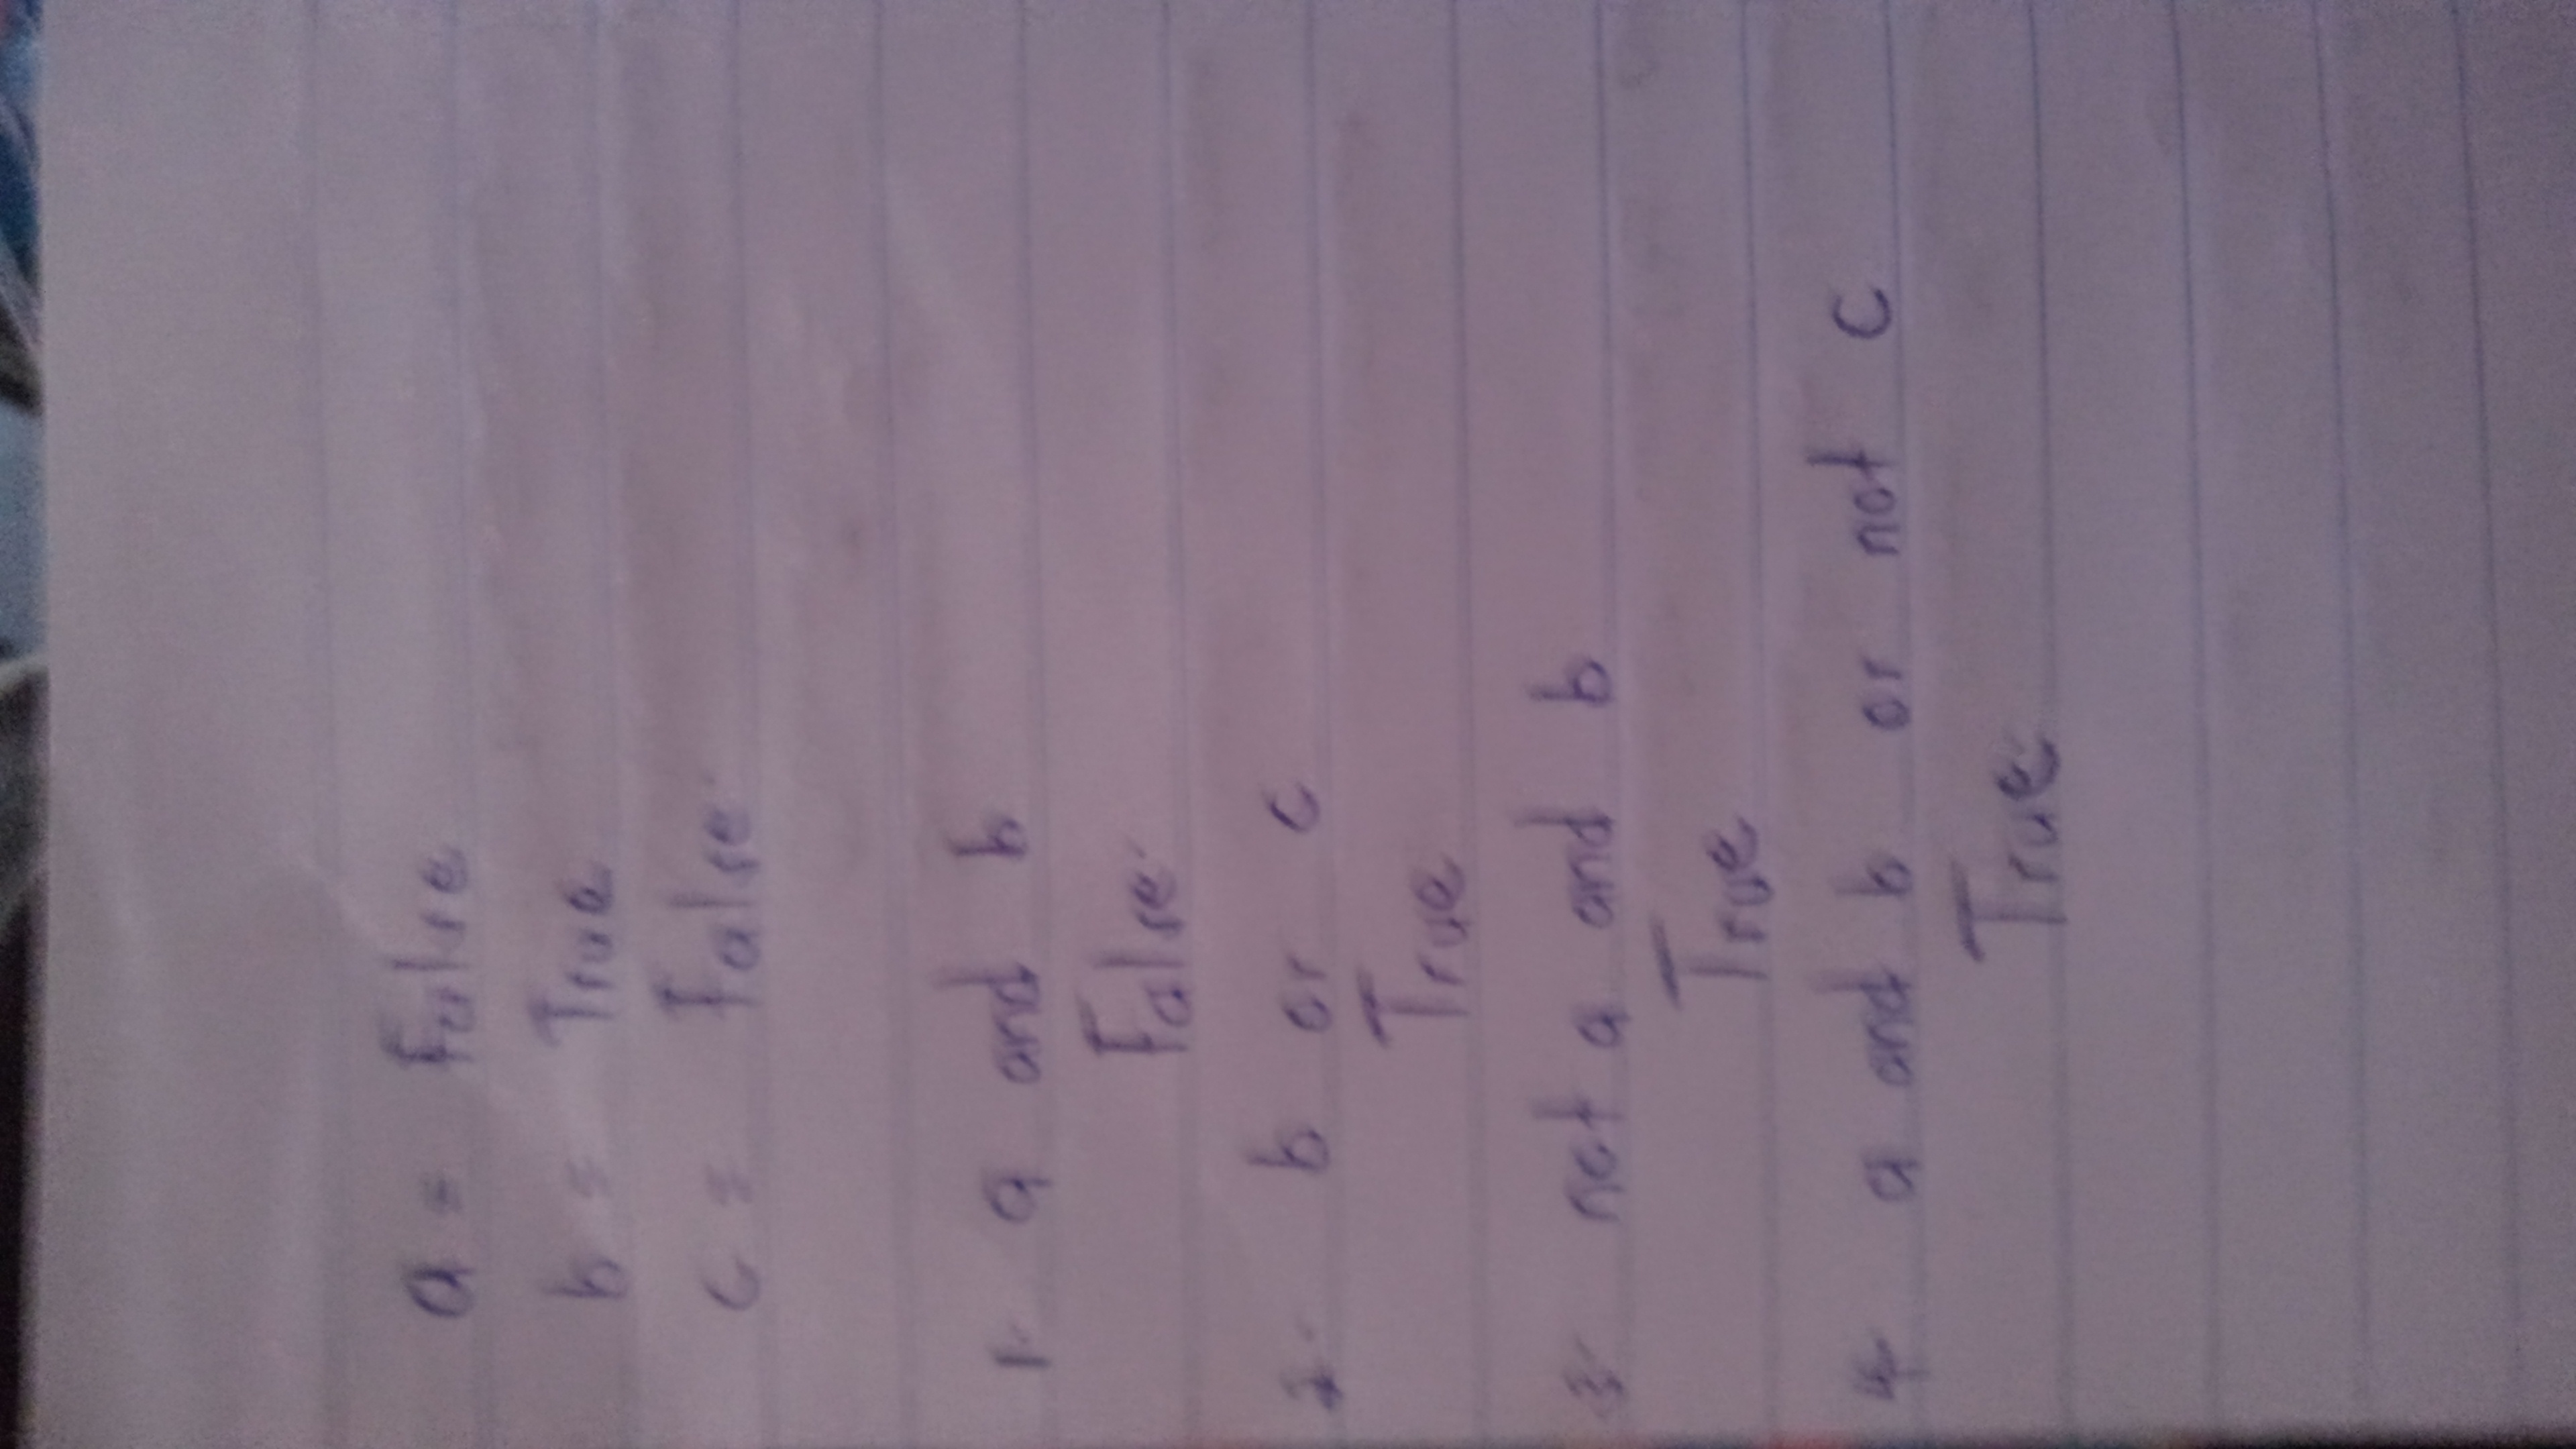 a = False
b = True
c = False
1. a and b
False
2. b or c
True
3. not a and b
True
4. a and b or not c
True